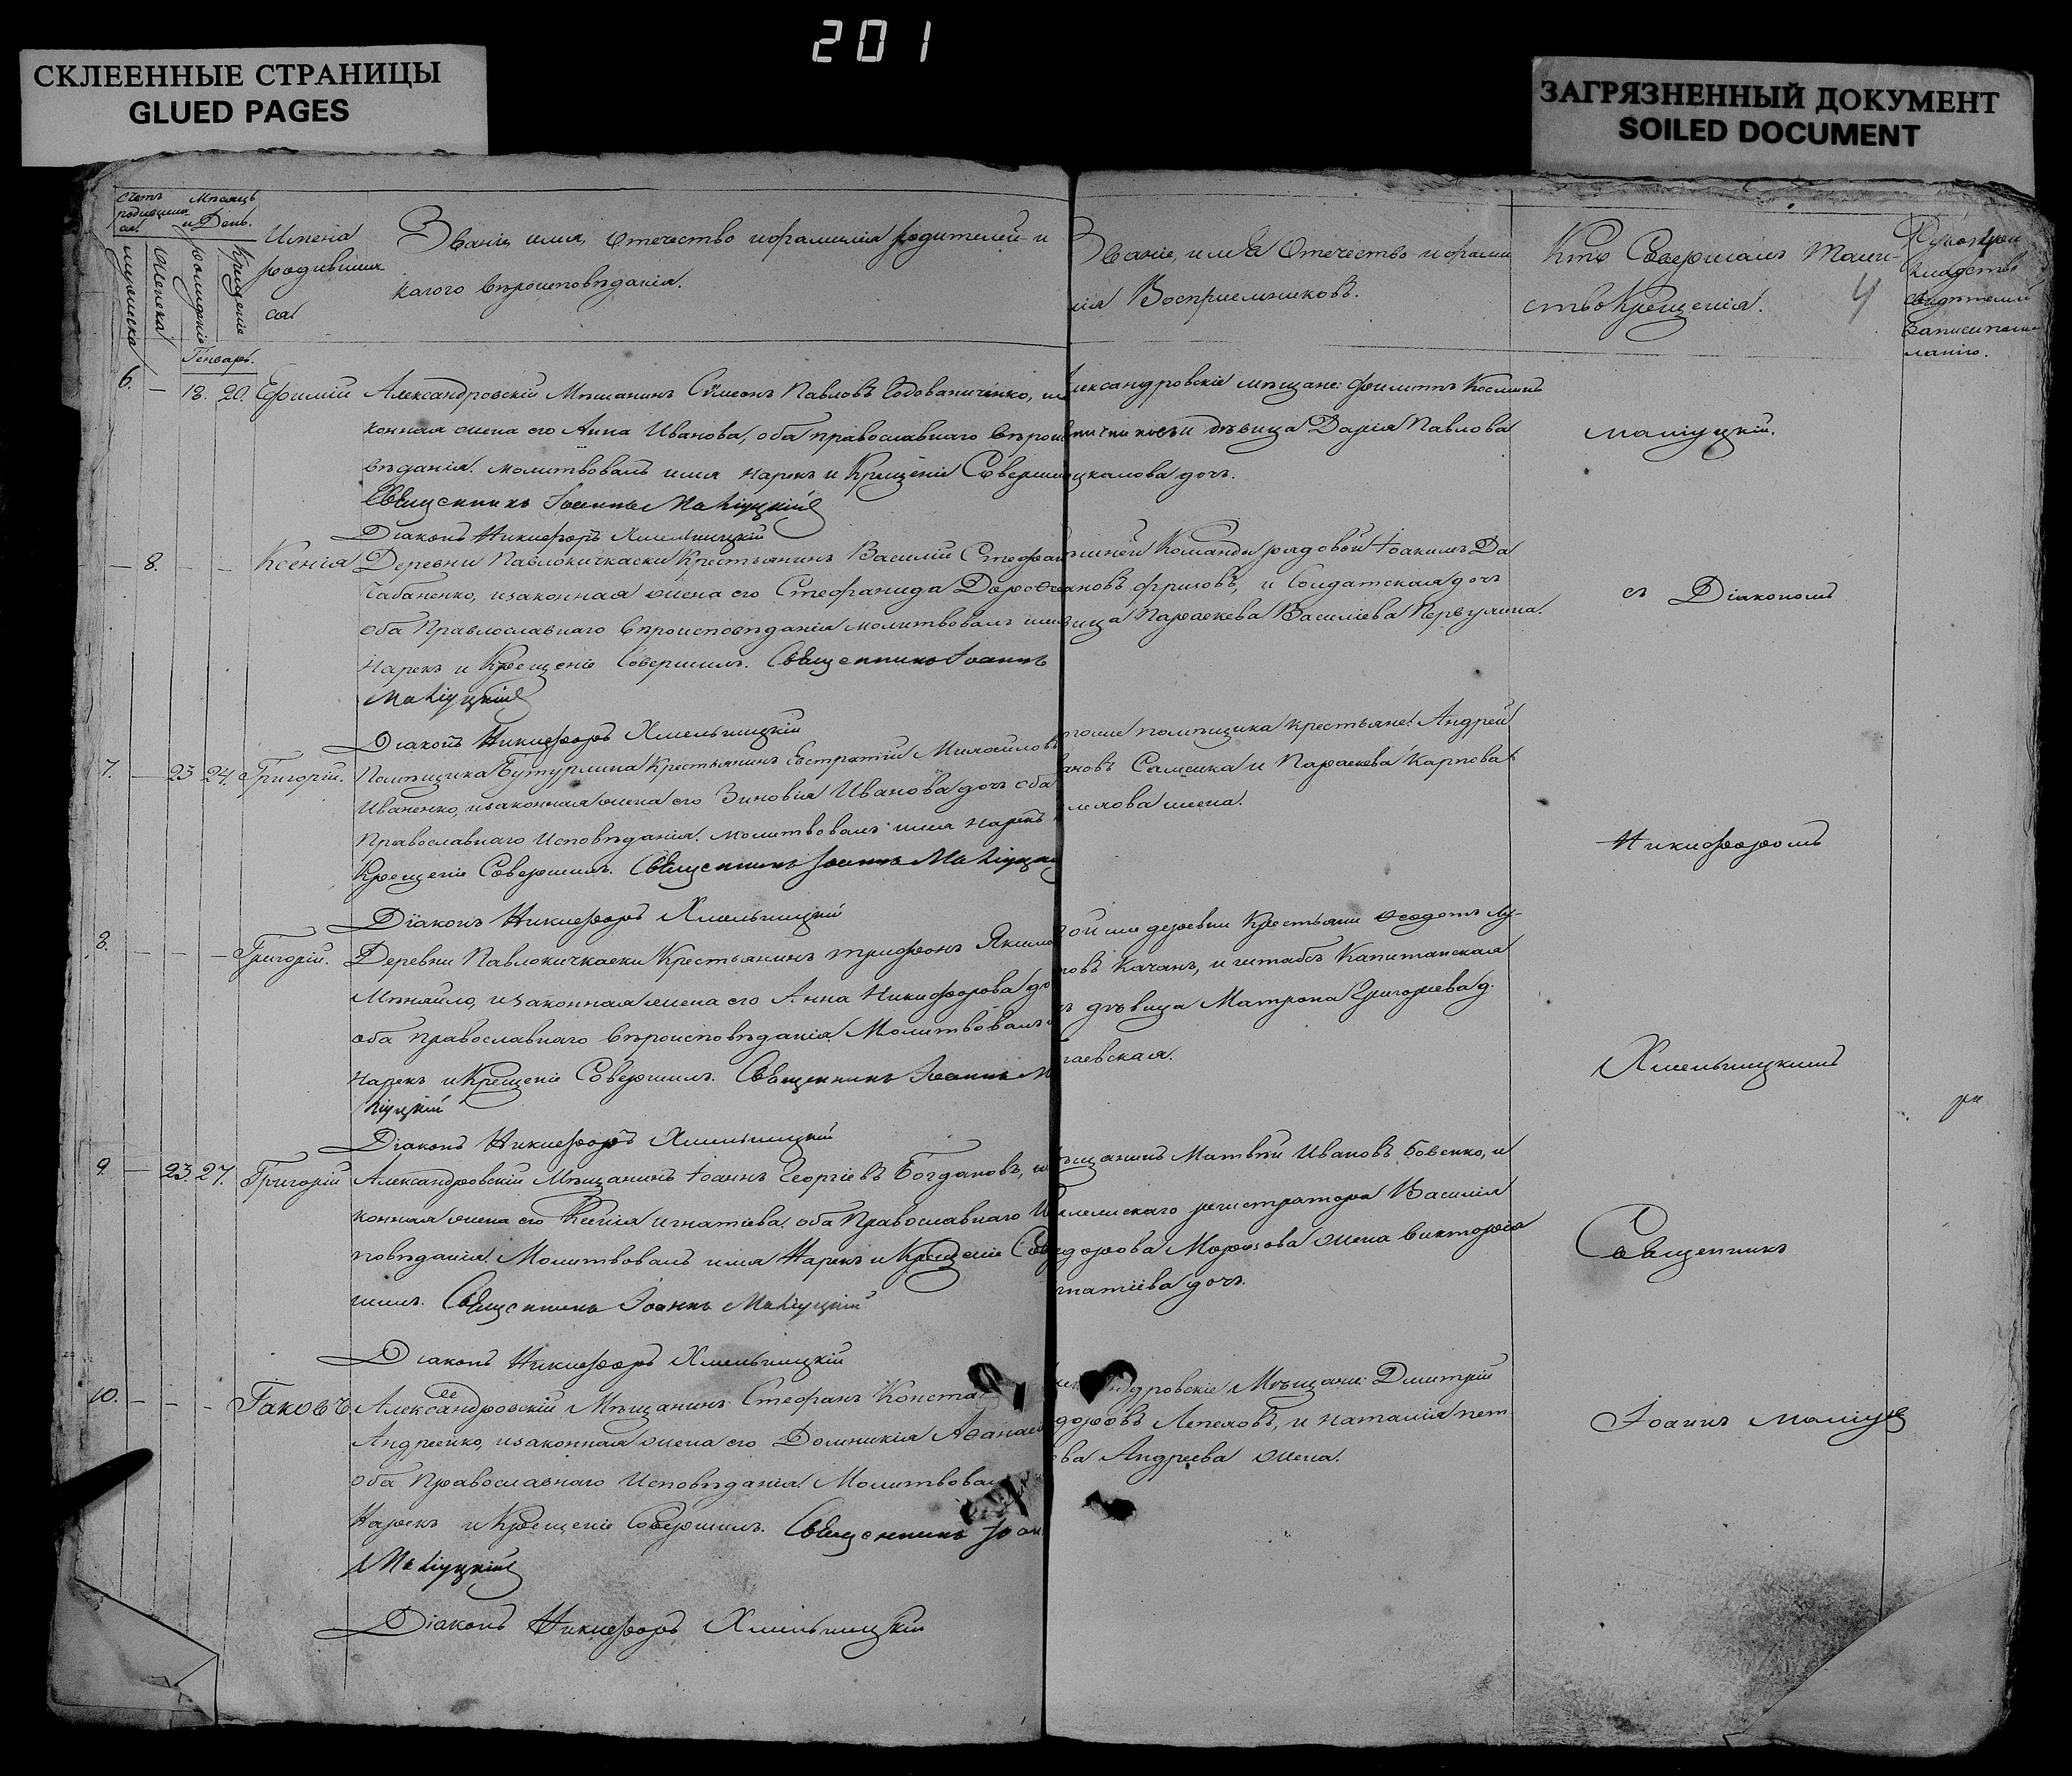 201
СКЛЕЕННЫЕ СТРАНИЦЫ
GLUED PAGES
ЗАГРЯЗНЕННЫЙ ДОКУМЕНТ
SOILED DOCUMENT
Счетъ родившихся.
Мѣсяцъ и День.
мужеска
женска
рожденіе
Крещеніе
Генварь.
Имена
родивших
ся.
Званіе имя, Отечество и фамилія родителей и
какого вѣроисповѣданія.
Званіе, имя Отечество и фами
лія Воспріемниковъ.
Кто Совершалъ Таин-
ство Крещенія.
4
Рукопри
кладство
свидѣтелей
записи по же
ланію.
6. — 18. 20. Ефимій
Александровскій Мѣщанинъ Сѵмеонъ Павловъ
конная жена его Анна Иванова, оба православнаго вѣроис
вѣданія. молитвовалъ имя нарекъ и Крещеніе Соверши
Священникъ Іоаннъ Маліуцкій
Діаконъ Никифоръ Хмельницкій
лександровскіе мѣщане: Филиппъ Косминъ
и дѣвица Дарія Павлова
калова дочь.
Маліуцкій.
— 8. — — Ксенія
Деревни Павлокичкаски Крестьянинъ Василій Стефан
Чабаненко, и законная жена его Стефанида Дорофе
оба Православнаго вѣроисповѣданія молитвовалъ имя
Нарекъ и Крещеніе Совершилъ. Священникъ Іоаннъ
Маліуцкій
Діаконъ Никифоръ Хмельницкій
Команды рядовой Іоакимъ Да
ановъ Фриховъ, и Солдатская дочь
вица Параскева Василіева Первушина.
съ Діакономъ
7. — 23 24. Григорій.
Помѣщика Бутурлина Крестьянинъ Евстратій Михайловъ
Иваненко, и законная жена его Зиновія Иванова дочь оба
Православнаго Исповѣданія. молитвовалъ имя нарекъ
Крещеніе Совершилъ. Священникъ Іоаннъ Маліуцкі
Діаконъ Никифоръ Хмельницкій
помѣщика крестьяне: Андрей
ановъ Самсика и Параскева Карпова
жена.
Никифоромъ
8. — — — Григорій.
Деревни Павлокичкаски Крестьянинъ Трифонъ Якимо
Мѣняйло, и законная жена его Анна Никифорова до
оба православнаго вѣроисповѣданія. Молитвовалъ
нарекъ и Крещеніе Совершилъ. Священникъ Іоаннъ М
ліуцкій
Діаконъ Никифоръ Хмельницкій
той же деревни Крестьяни Ѳеодотъ Лу-
овъ Качанъ, и штабсъ Капитанская
дѣвица Матрона Григоріева д.
гаевская.
Хмельницкимъ
9. — 23. 27. Григорій
Александровскій Мѣщанинъ Іоаннъ Георгіевъ Богдановъ,
конная жена его Ксенія игнатіева, оба Православнаго И
повѣданія. Молитвовалъ имя Нарекъ и Крещеніе Сове
шилъ. Священникъ Іоаннъ Маліуцкій
Діаконъ Никифоръ Хмельницкій
ѣщанинъ Матвѣй Ивановъ Бовенко, и
регистратора Василія
дорова Морозова жена Викторія
гнатіева дочь.
Священникъ
10. — — — Іаковъ
Александровскій Мѣщанинъ Стефанъ Конста
Андреенко, и законная жена его Домникія Аѳанась
Оба Православнаго Исповѣданія. Молитвовал
Нарекъ и Крещеніе Совершилъ. Священникъ Іоан
Маліуцкій
Діаконъ Никифоръ Хмельницкій
ндровскіе Мѣщане: Димитрій
доровъ Лепеховъ, и Наталія пет
ова Андреева жена.
Іоаннъ Маліуц